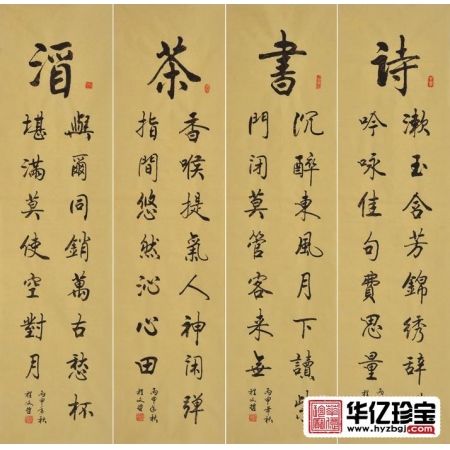 詩
漱玉含芳錦绣辞
吟咏佳句費思量
書
沉醉東風月下讀
門闭莫管客来無
丙申年秋
茶
香喉提氣人神闲弹
指間悠然沁心田
丙申年秋
酒
與爾同銷萬古愁杯
堪滿莫使空對月
丙申年秋
华亿珍宝
www.hyzbgj.com